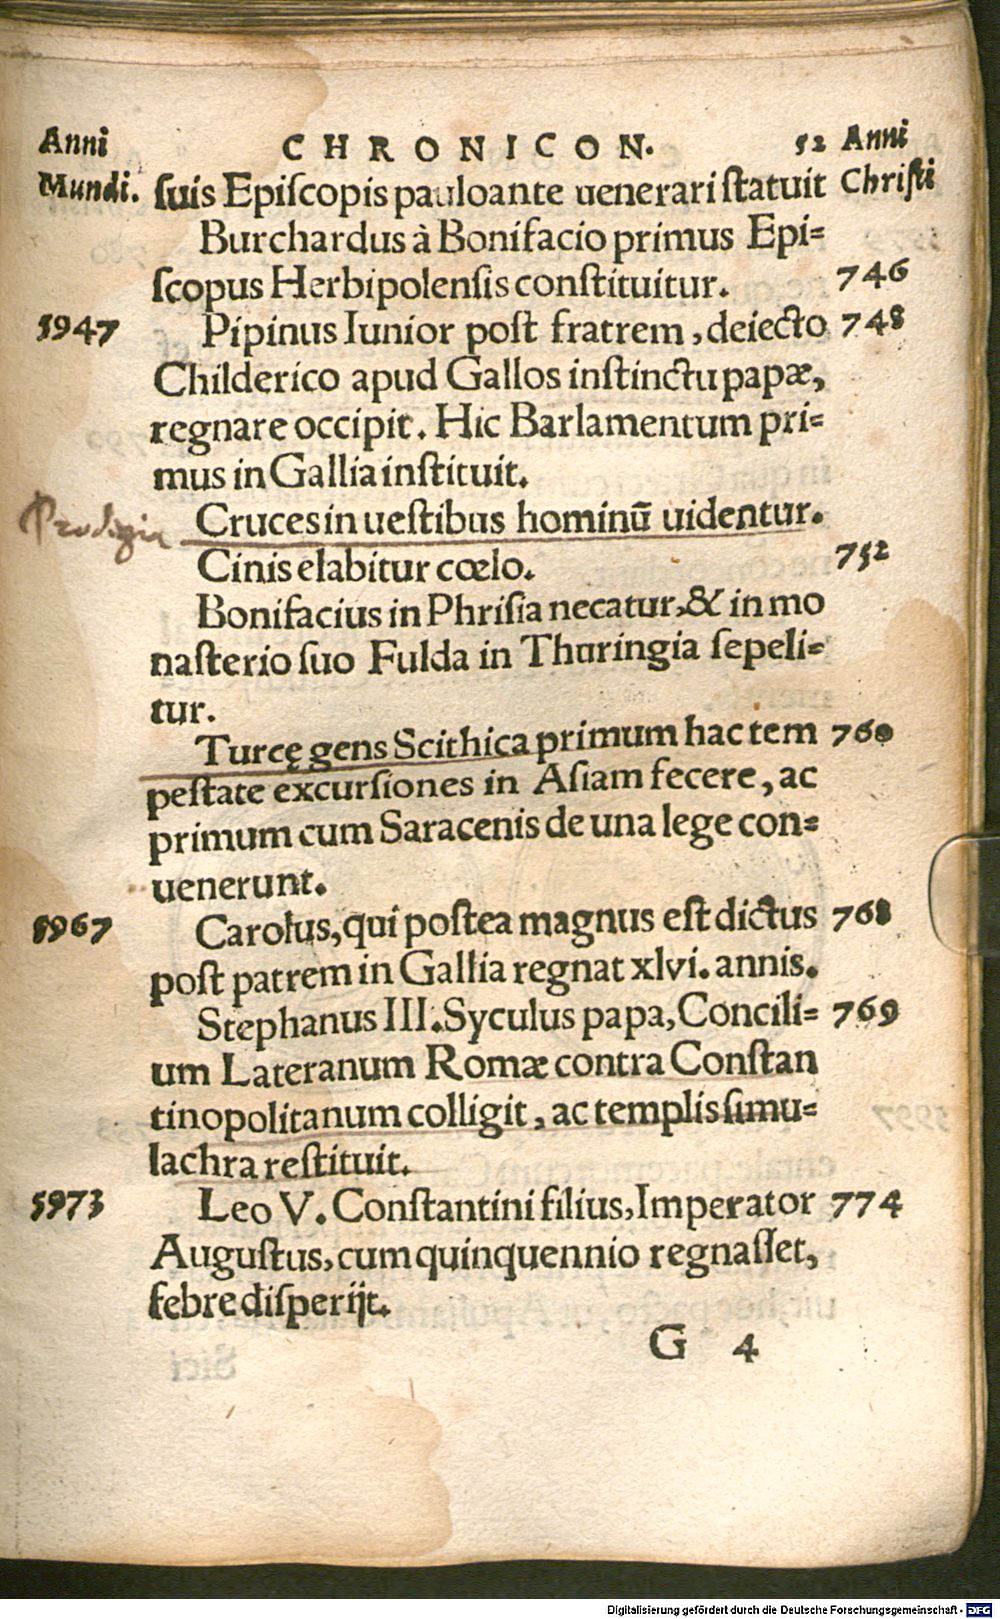 Anni CHRONICON. 52 Anni
Mundi. suis Episcopis pauloante uenerari statuit Christi
Burchardus à Bonifacio primus Epi=
scopus Herbipolensis constituitur. 746
5947 Pipinus Iunior post fratrem, deiecto 748
Childerico apud Gallos instinctu papæ,
regnare occipit. Hic Barlamentum pri=
mus in Gallia instituit.
Prodigia Cruces in uestibus hominū uidentur.
Cinis elabitur cœlo. 752
Bonifacius in Phrisia necatur, & in mo
nasterio suo Fulda in Thuringia sepeli=
tur.
Turcę gens Scithica primum hac tem 760
pestate excursiones in Asiam fecere, ac
primum cum Saracenis de una lege con=
uenerunt.
5967 Carolus, qui postea magnus est dictus 768
post patrem in Gallia regnat xlvi. annis.
Stephanus III. Syculus papa, Concili= 769
um Lateranum Romæ contra Constan
tinopolitanum colligit, ac templis simu=
lachra restituit.
5973 Leo V. Constantini filius, Imperator 774
Augustus, cum quinquennio regnasset,
febre disperijt.
G 4
Digitalisierung gefördert durch die Deutsche Forschungsgemeinschaft - DFG